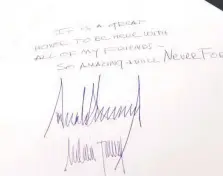 IT IS A GREAT
HONOR TO BE HERE WITH
ALL OF MY FRIENDS -
SO AMAZING & WILL NEVER FOR
Melania Trump